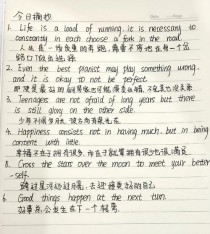 今日摘抄
1. Life is a load of running. it is necessary to
constantly in each choose a fork in the road.
人生是一场负重的奔跑，需要不停地在每一个岔
路口做出选择
2. Even the best pianist may play something wrong.
and it is okay to not be perfect.
即使是最好的钢琴家也可能演奏出错，不完美也没关系
3. Teenagers are not afraid of long years but there
is still glory on the other side.
少年不惧岁月长，彼方尚有荣光在
4. Happiness consists not in having much. but in being
content with little.
幸福不在于拥有很多，而在于就算拥有很少也很满足
8. Cross the stars over the moon to meet your better
-self.
跨过星河迈过月亮，去迎接更好的自己
6. Good things happen at the next turn.
好事
公
在下一个转弯